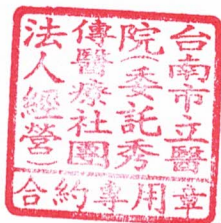 台南市立醫
院(委託秀
傳醫療社團
法人經營)
合約專用章